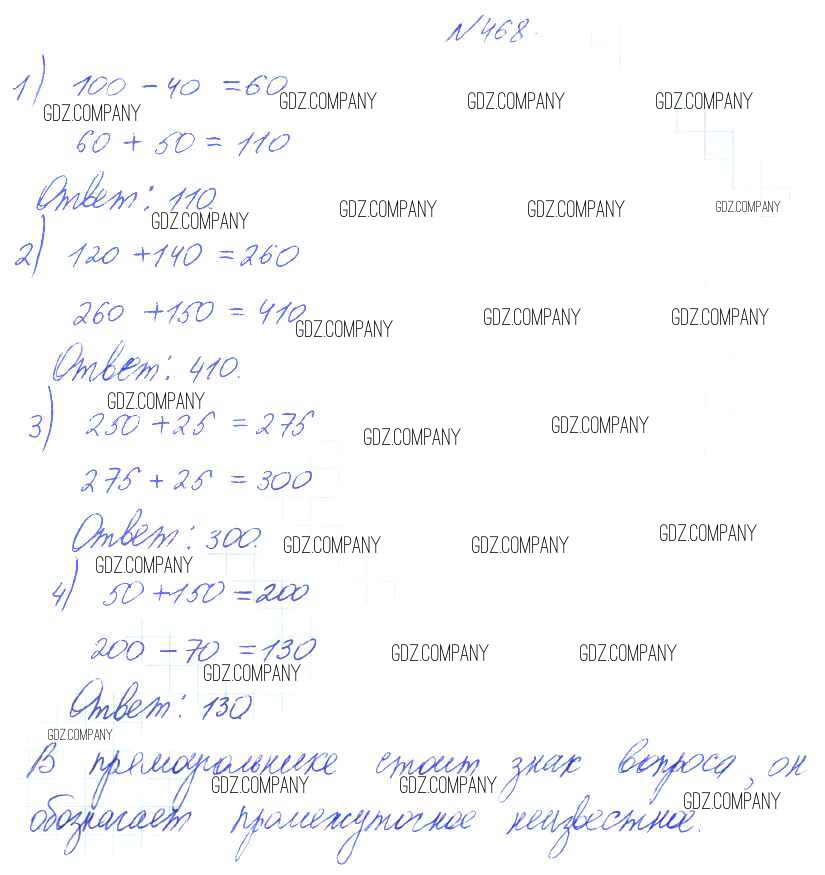 №468.
1) 100 - 40 = 60
GDZ.COMPANY GDZ.COMPANY GDZ.COMPANY GDZ.COMPANY
60 + 50 = 110
Ответ: 110.
GDZ.COMPANY GDZ.COMPANY GDZ.COMPANY GDZ.COMPANY
2) 120 + 140 = 260
260 + 150 = 410
GDZ.COMPANY GDZ.COMPANY GDZ.COMPANY
Ответ: 410.
GDZ.COMPANY
3) 250 + 25 = 275
GDZ.COMPANY GDZ.COMPANY
275 + 25 = 300
Ответ: 300.
GDZ.COMPANY GDZ.COMPANY GDZ.COMPANY
GDZ.COMPANY
4) 50 + 150 = 200
200 - 70 = 130
GDZ.COMPANY GDZ.COMPANY GDZ.COMPANY
Ответ: 130
GDZ.COMPANY
В прямоугольнике стоит знак вопроса, он
GDZ.COMPANY GDZ.COMPANY GDZ.COMPANY
обозначает промежуточное неизвестное.